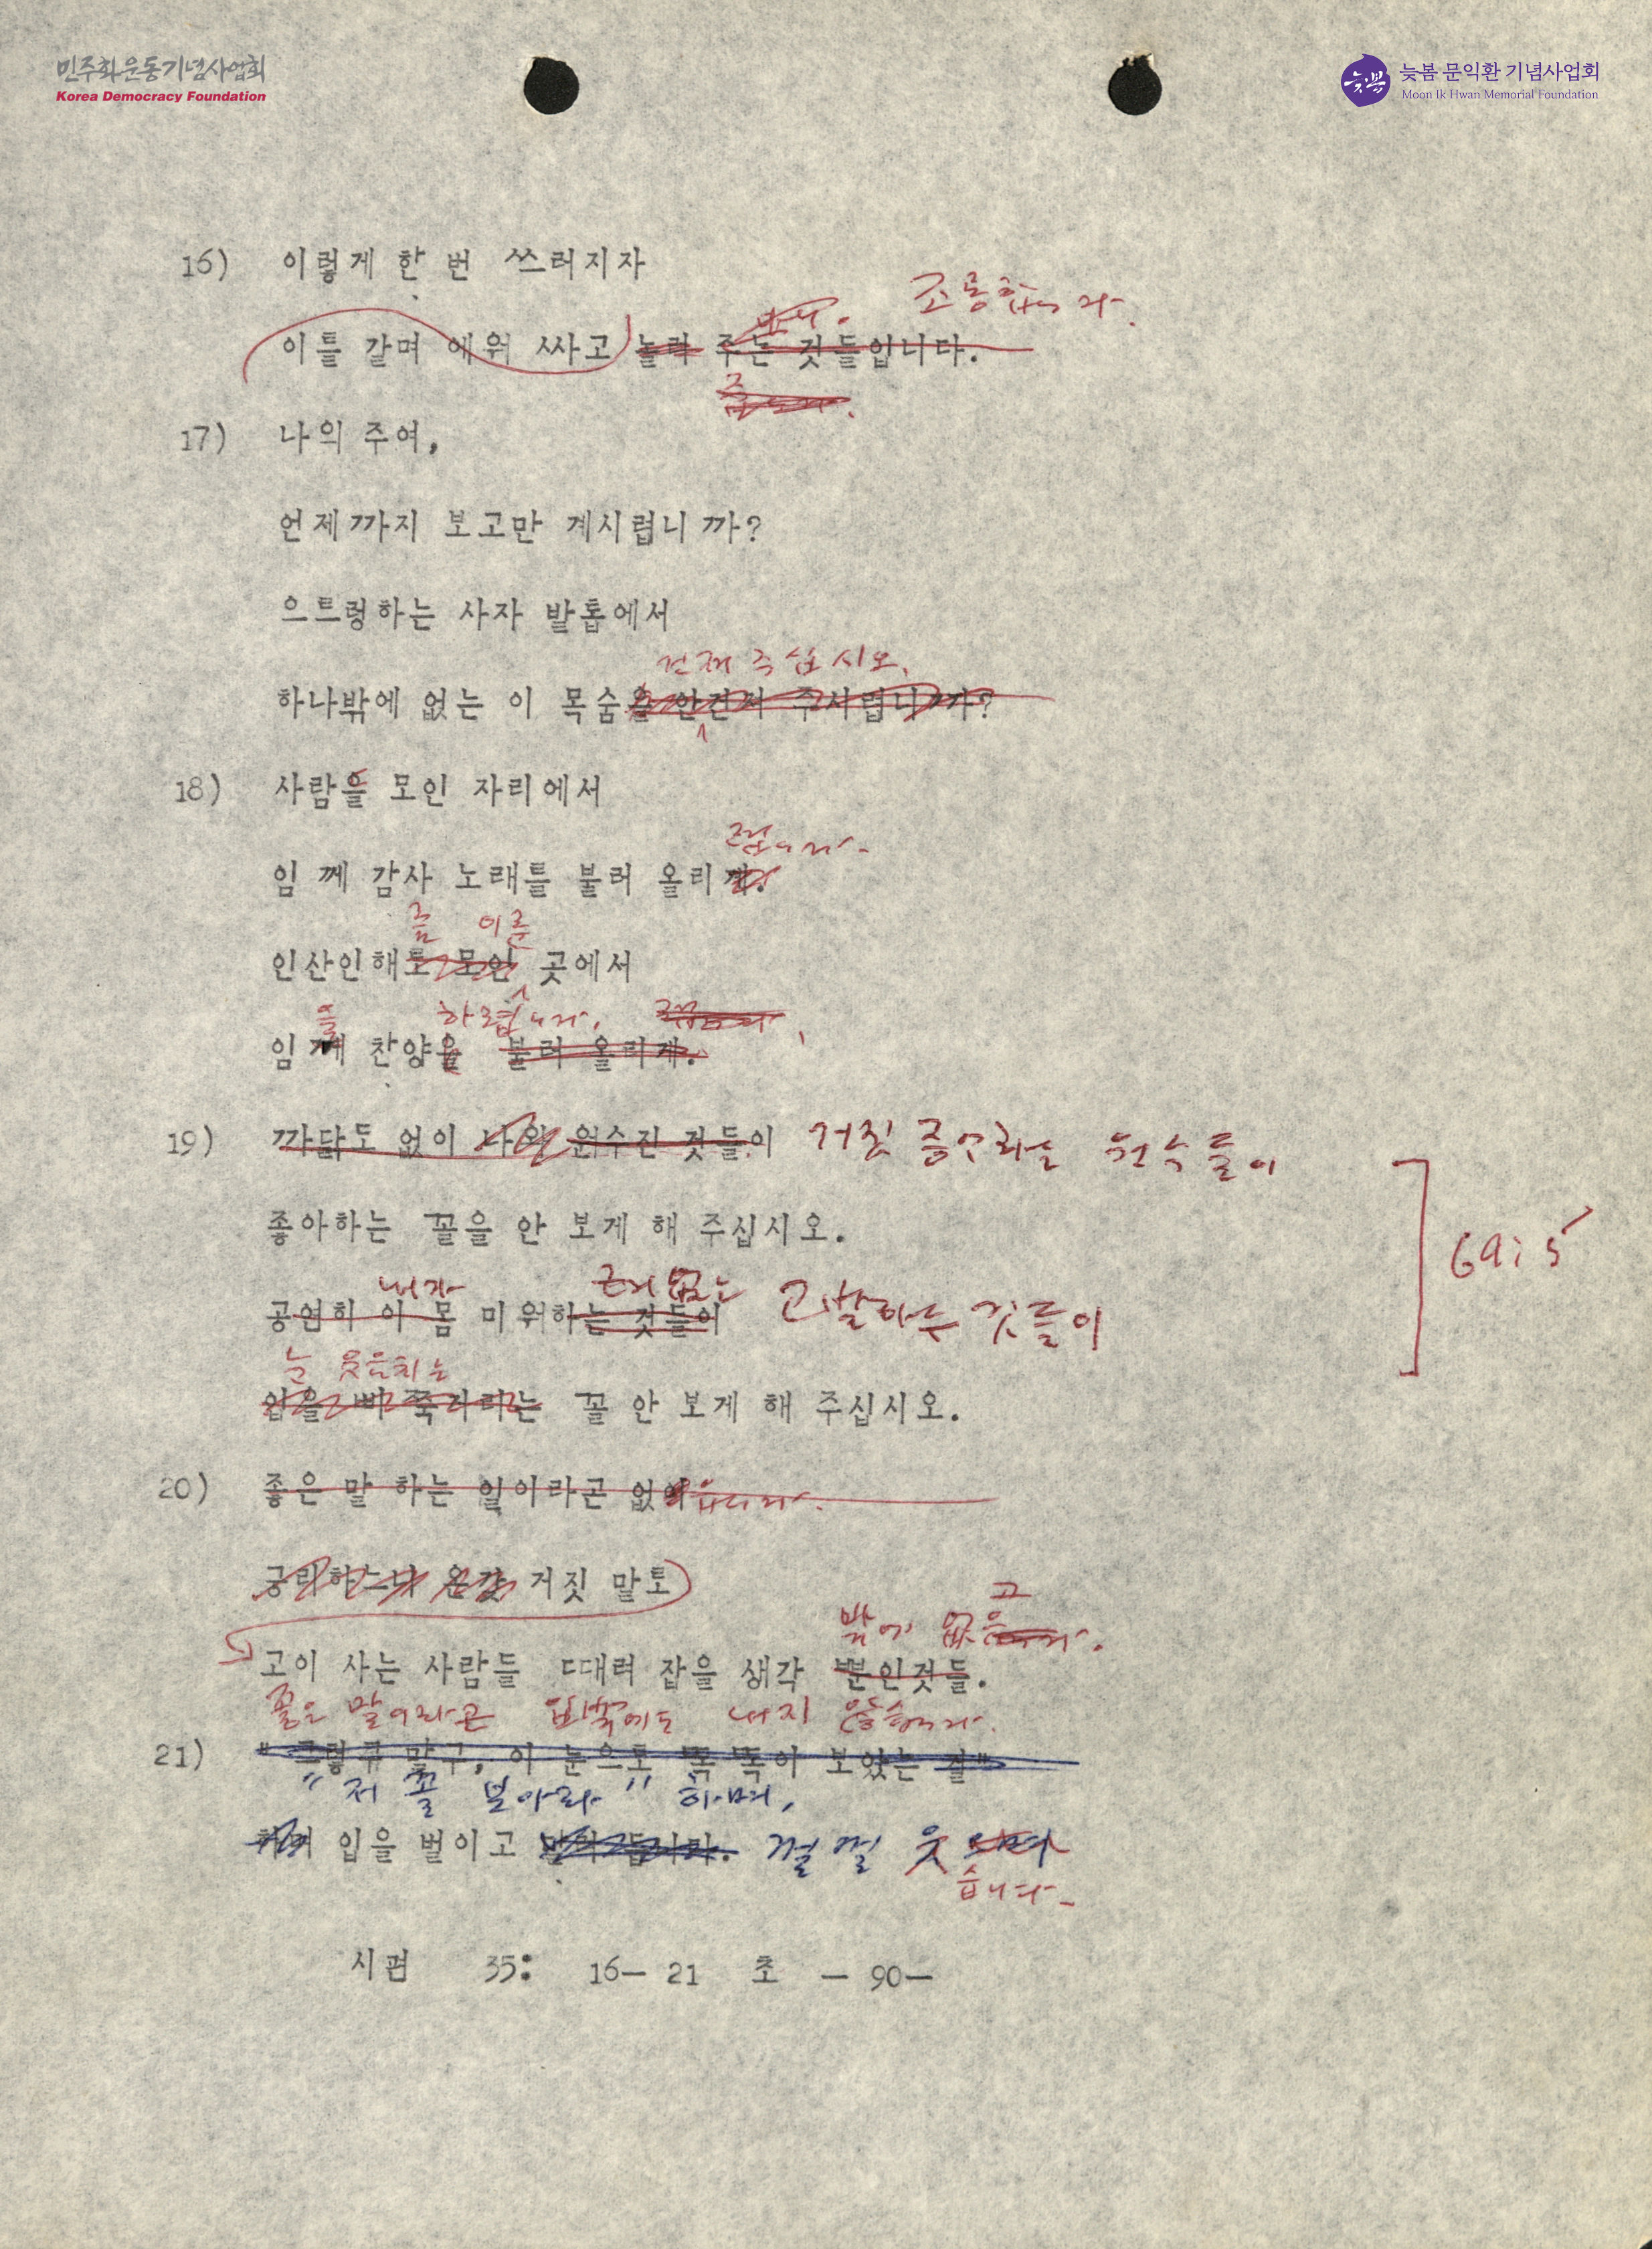 민주화운동기념사업회
Korea Democracy Foundation
늦봄
늦봄 문익환 기념사업회
Moon Ik Hwan Memorial Foundation
16) 이렇게 한 번 쓰러지자
조롱합니다.
이를 갈며 에워 싸고 놀려 주는 것들입니다.
17) 나의 주여,
언제까지 보고만 계시렵니까?
으르렁하는 사자 발톱에서
건져 주십시오.
하나밖에 없는 이 목숨을 안건져 주시렵니까?
18) 사람을 모인 자리에서
렵니다.
임 께 감사 노래를 불러 올리게.
를 이룬
인산인해로 모인 곳에서
를 하렵니다.
임 께 찬양을 불러 올리게.
19) 까닭도 없이 나와 원수진 것들이 거짓 증언하는 원수들이
좋아하는 꼴을 안 보게 해 주십시오.
69:5
내가 근거 없는
공연히 이 몸 미워하는 것들이 고발하는 것들이
눈 웃음치는
입을 삐쭉거리는 꼴 안 보게 해 주십시오.
20) 좋은 말 하는 일이라곤 없어 읍니다.
궁리하느니 온갖 거짓 말로
밖에 없은 고
고이 사는 사람들 때려 잡을 생각 뿐인것들.
좋은 말이라곤 입밖에도 내지 않습니다.
21) "그렇구 말구, 이 눈으로 똑똑이 보았는 걸"
"저 꼴 보아라" 하며,
하며 입을 벌이고 껄껄 웃으며
습니다.
시편 35: 16— 21 초 — 90—